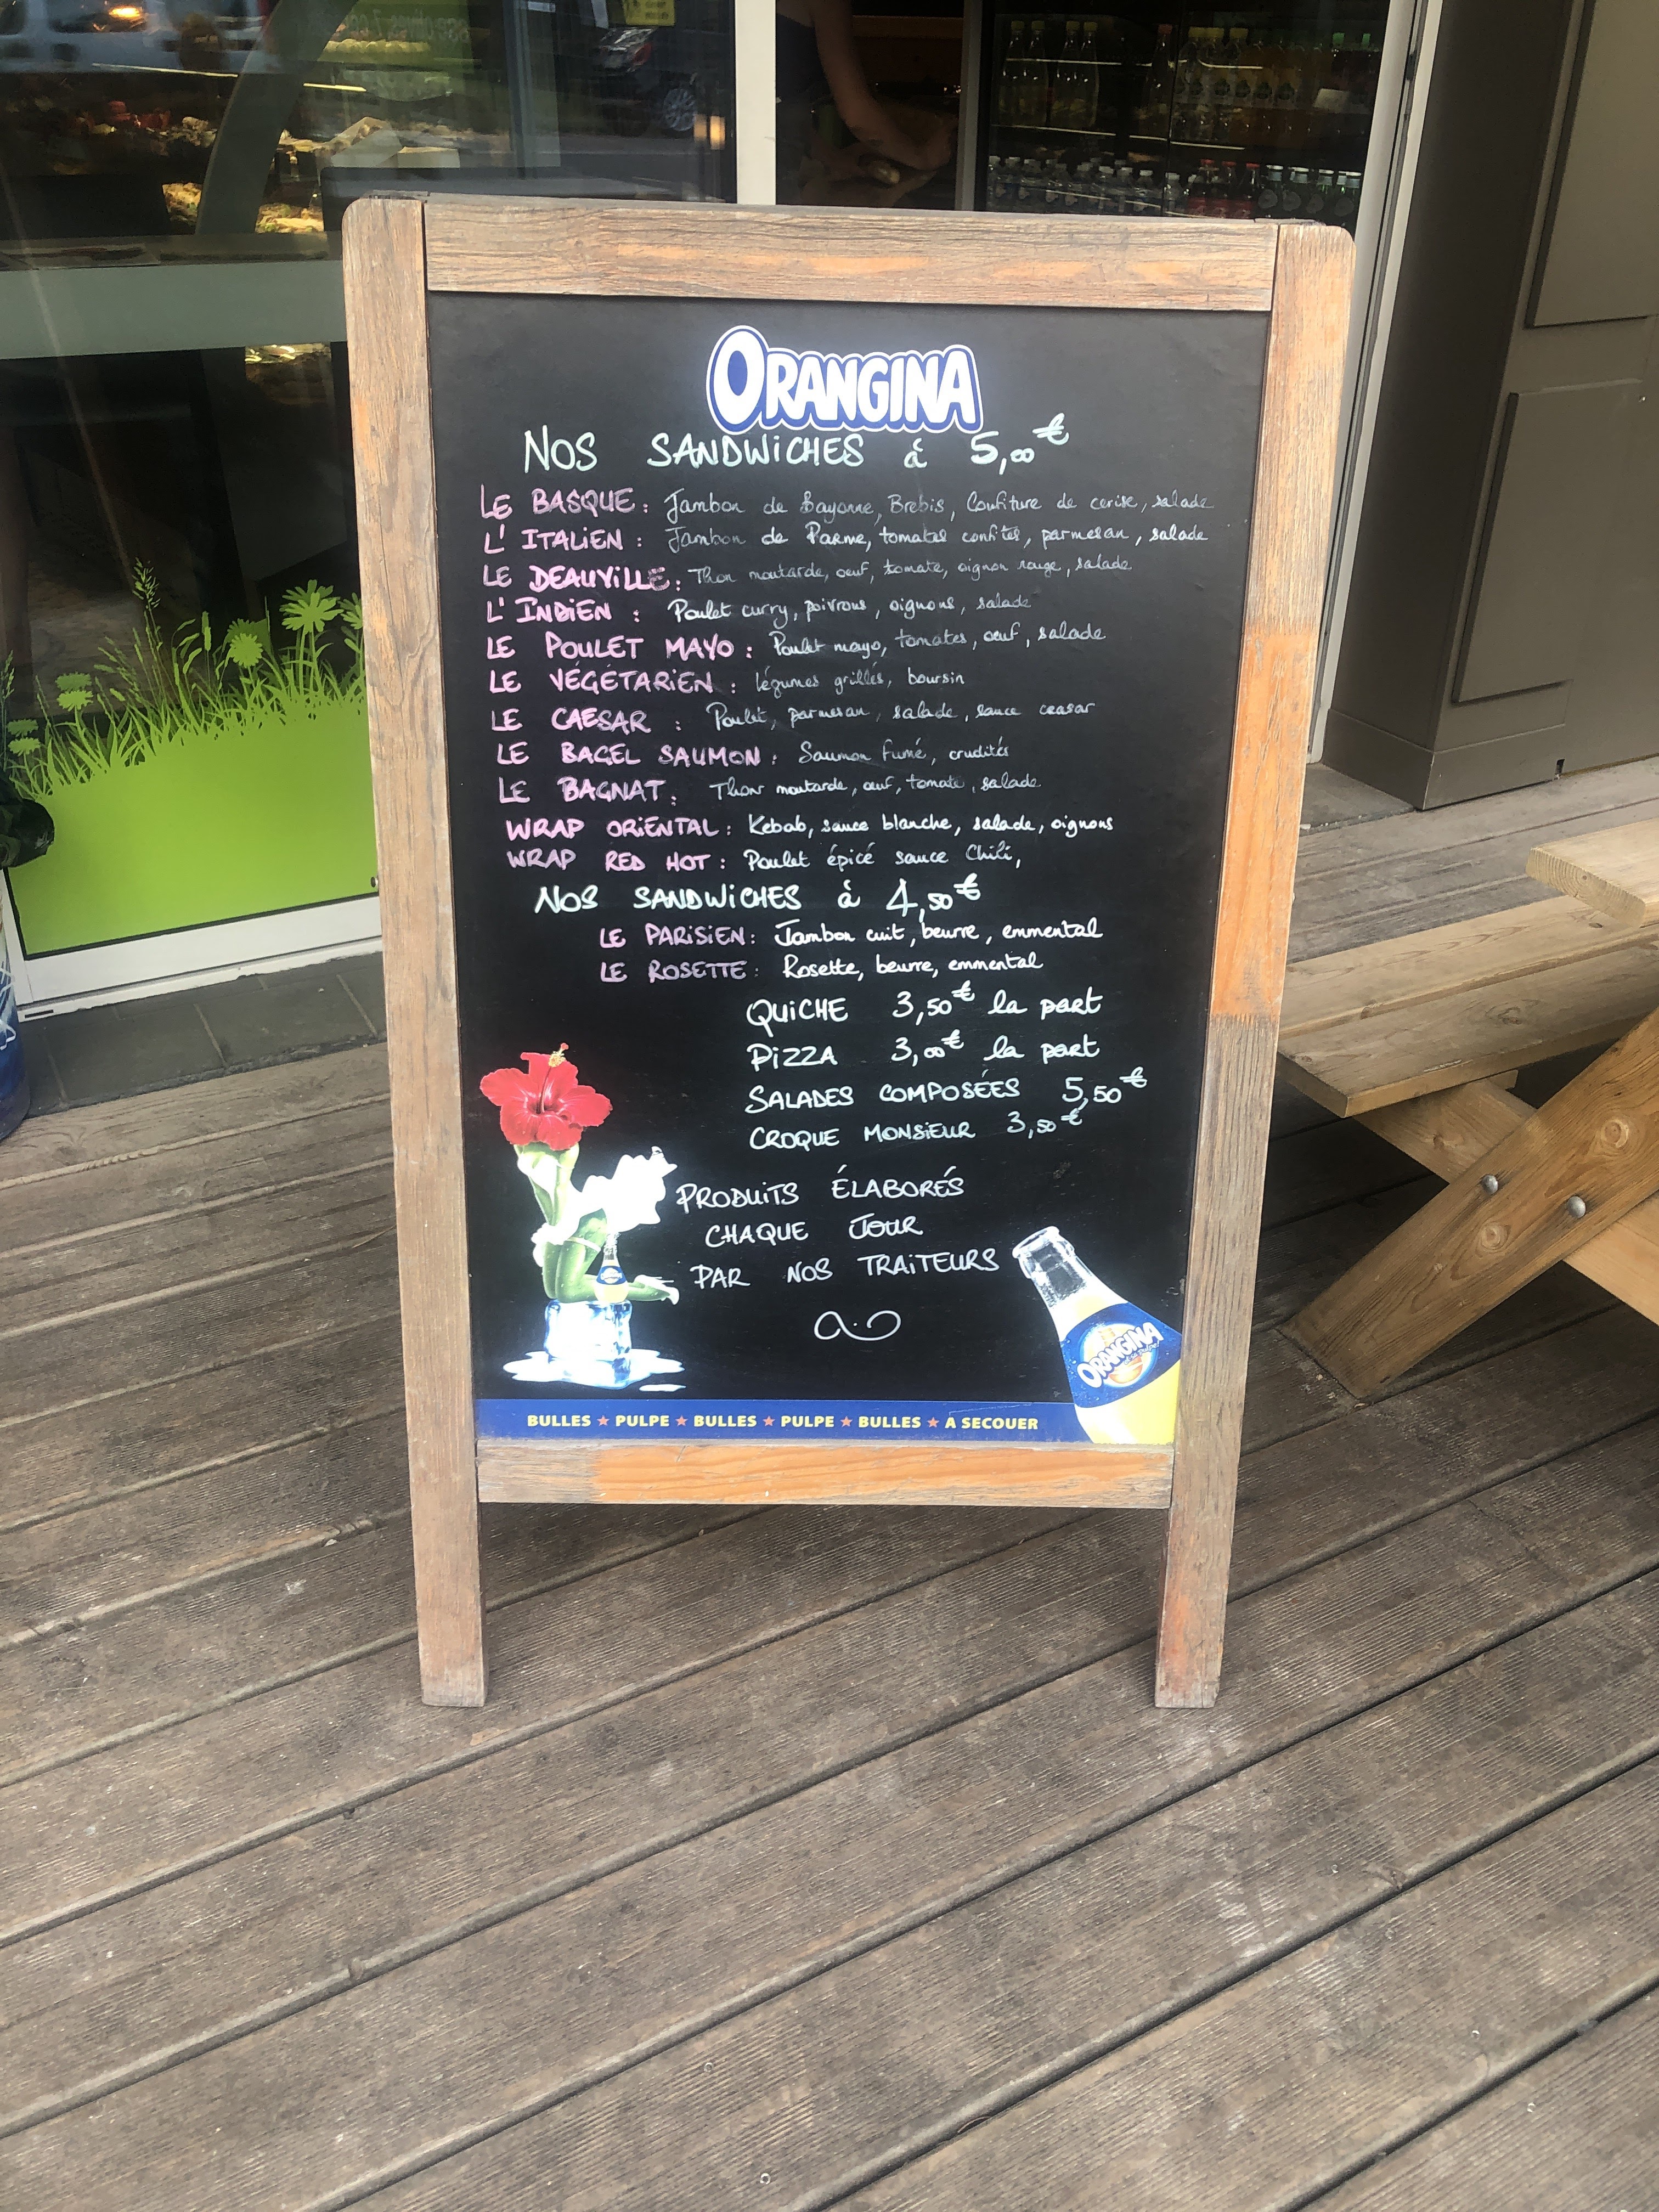 ORANGINA
NOS SANDWICHES à 5,00€
LE BASQUE : Jambon de Bayonne, Brebis, Confiture de cerise, salade
L'ITALIEN : Jambon de Parme, tomates confites, parmesan, salade
LE DEAUVILLE : Thon moutarde, œuf, tomate, oignon rouge, salade
L'INDIEN : Poulet curry, poivrons, oignons, salade
LE POULET MAYO : Poulet mayo, tomates, œuf, salade
LE VÉGÉTARIEN : légumes grillés, boursin
LE CAESAR : Poulet, parmesan, salade, sauce ceasar
LE BAGEL SAUMON : Saumon fumé, crudités
LE BAGNAT : Thon moutarde, œuf, tomate, salade
WRAP ORIENTAL : Kebab, sauce blanche, salade, oignons
WRAP RED HOT : Poulet épicé sauce Chili,
NOS SANDWICHES à 4,50€
LE PARISIEN : Jambon cuit, beurre, emmental
LE ROSETTE : Rosette, beurre, emmental
QUICHE 3,50€ la part
PIZZA 3,00€ la part
SALADES COMPOSÉES 5,50€
CROQUE MONSIEUR 3,50€
PRODUITS ÉLABORÉS
CHAQUE JOUR
PAR NOS TRAITEURS
ORANGINA
BULLES ★ PULPE ★ BULLES ★ PULPE ★ BULLES ★ A SECOUER